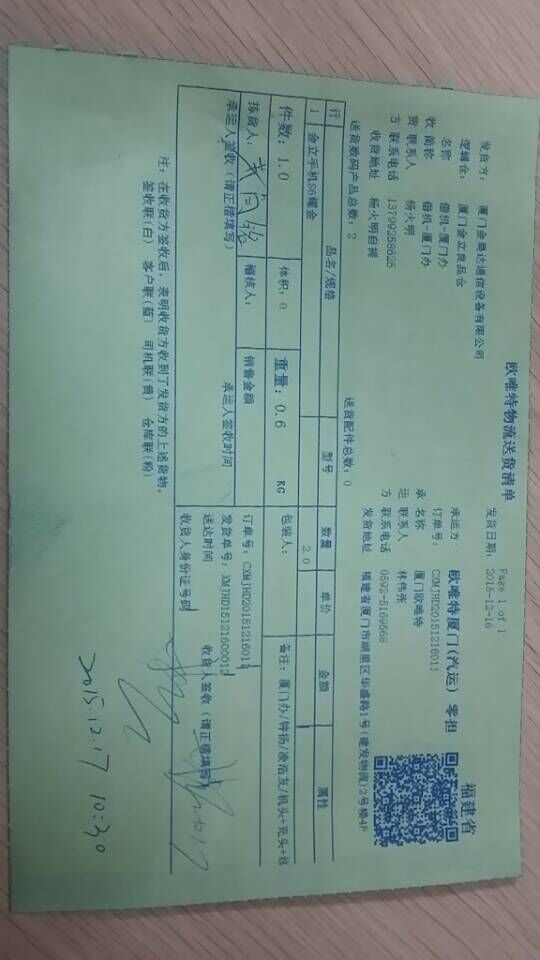 欧唯特物流送货清单
Page 1 of 1
发货日期: 2015-12-16
福建省
发货方: 厦门金奥达通信设备有限公司
逻辑仓: 厦门金立良品仓
承运方: 欧唯特厦门(汽运) 零担
订单号: CXMJHD20151216011
收货方
名称 借机-厦门办
简称 借机-厦门办
联系人 杨火明
联系电话 13799258625
收货地址 杨火明自提
承运方
名称: 厦门欧唯特
联系人 林伟张
联系电话 0592-5169568
发货地址 福建省厦门市湖里区华盛路1号(建发物流)2号楼4F
送货数码产品总数: 2
送货配件总数: 0
行 品名/规格 型号 数量 单价 金额 属性
1 金立手机S6耀金 2.0
件数: 1.0 体积: 0 重量: 0.6 KG 包装人: 备注: 厦门办/钟扬/凌浩友/机头+充头+包
拣货人: 稽核人: 销售金额 订单号: CXMJHD20151216011
发货单号: XMJHD15121600012
承运人签收(请正楷填写) 承运人签收时间 送达时间 收货人签收(请正楷填写)
收货人身份证号码
注: 在收货方签收后, 表明收货方收到了发货方的上述货物。
签收联(白) 客户联(蓝) 司机联(黄) 仓库联(粉)
2015.12.17 10:30